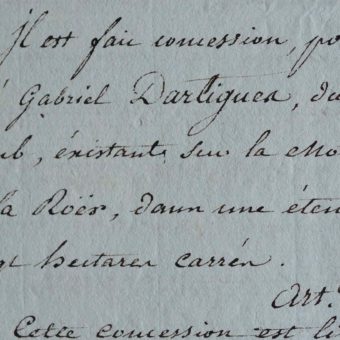 Il est fait concession, po
Gabriel Dartigues, du
existant sur la mo
la Roër, dans une éten
gt hectares carrés.
Art.
Cette concession est li